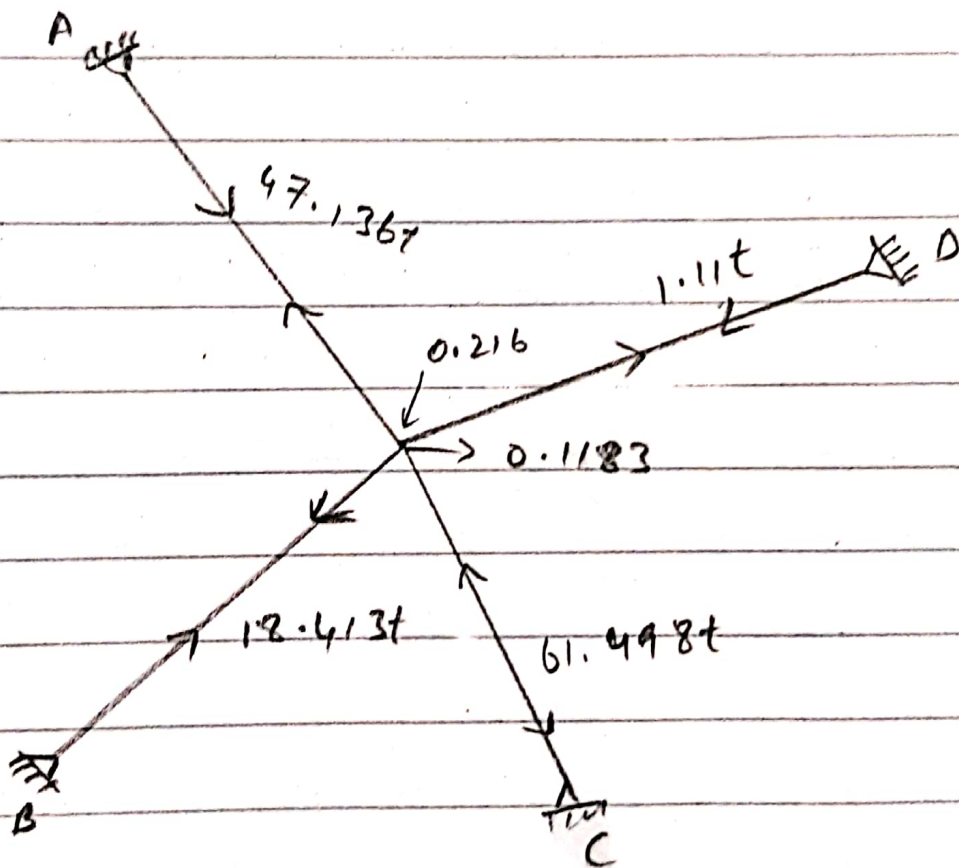 A
47.136t
D
1.11t
0.216
0.1183
18.413t
61.498t
B
C